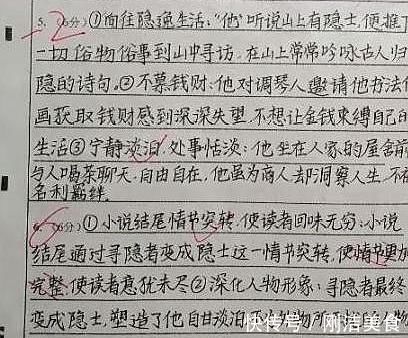 5. (6分)①向往隐逸生活:"他"听说山上有隐士,便推了
一切俗物俗事到山中寻访,在山上常常吟咏古人归
隐的诗句。②不慕钱财:他对调琴人邀请他书法
画获取钱财感到深深失望,不想让金钱束缚自己的
生活③宁静淡泊,处事恬淡:他坐在人家的屋舍前
与人喝茶聊天,自由自在,他虽为商人却洞察人生,不
名利羁绊.
6. (6分)①小说结尾情节突转,使读者回味无穷:小说
结尾通过寻隐者变成隐士这一情节突转,使情节更加
完整,使读者意犹未尽②深化人物形象:寻隐者最终
变成隐士,塑造了他自甘淡泊
-2
6
快传号/刚洁美食